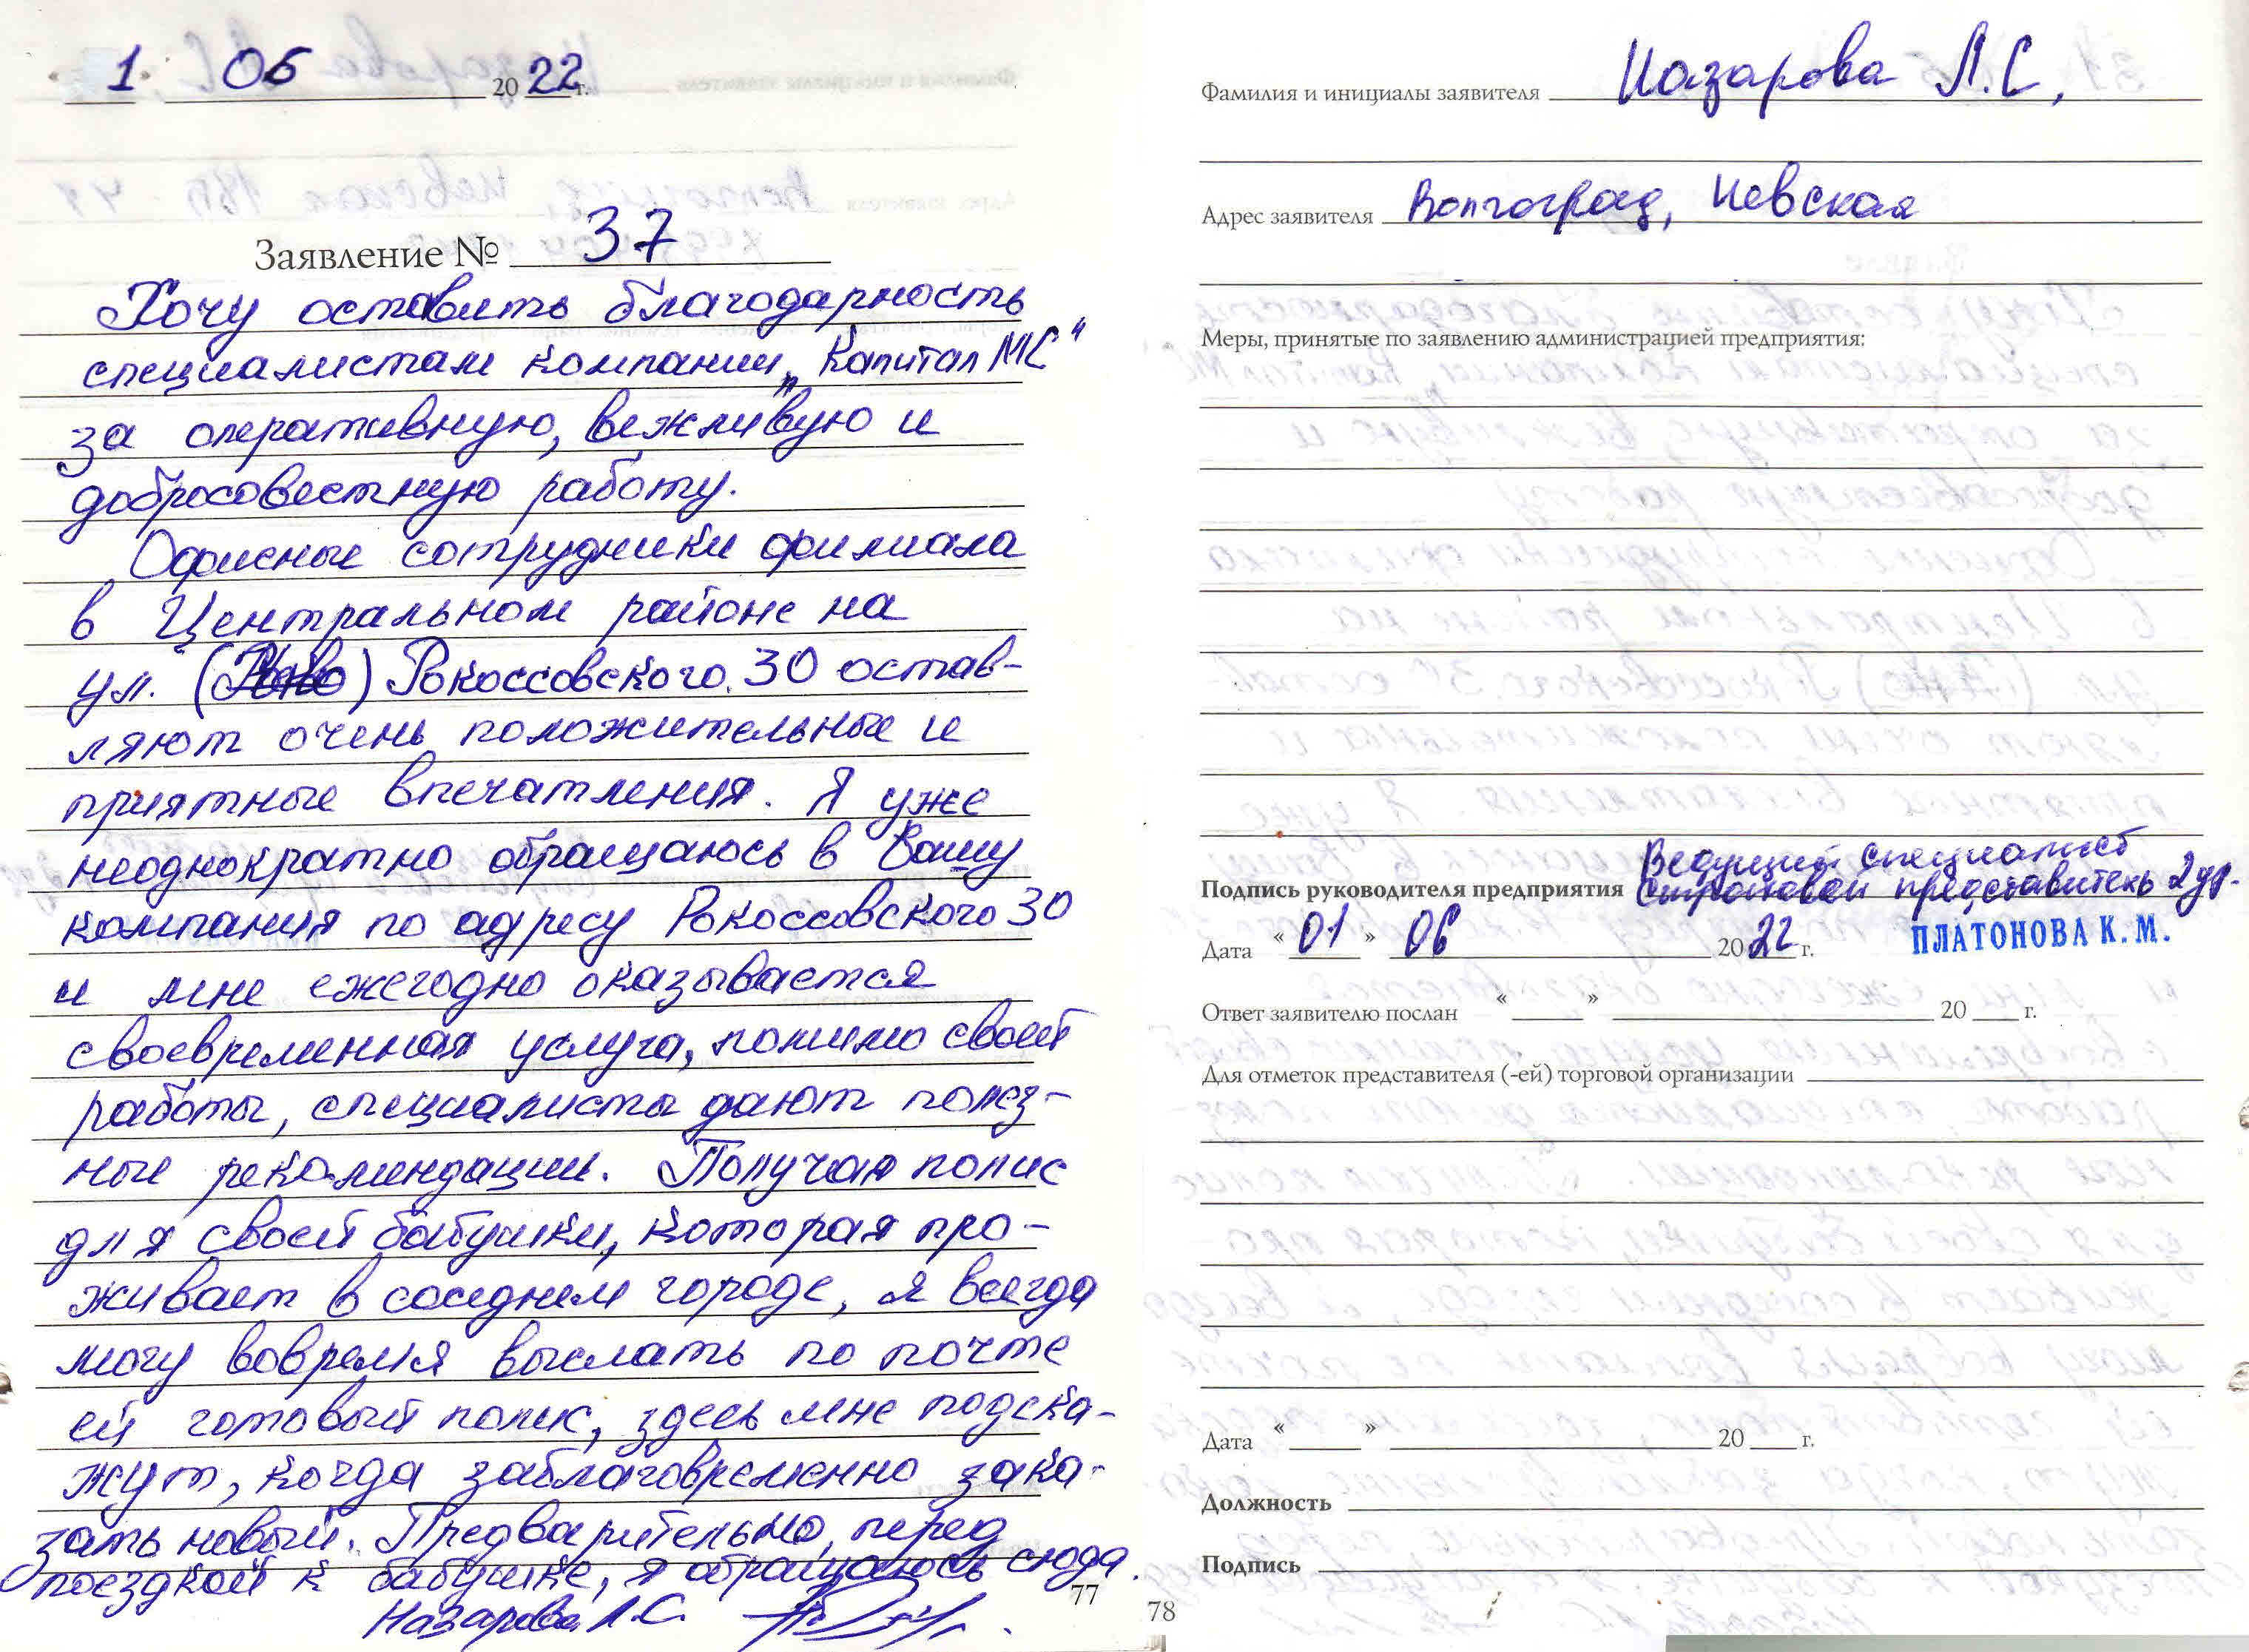 1 06 2022 г.
Заявление № 37
Хочу оставить благодарность
специалистам компании „Капитал МС"
за оперативную, вежливую и
добросовестную работу.
Офисные сотрудники филиала
в Центральном районе на
ул. () Рокоссовского. 30 остав-
ляют очень положительные и
приятные впечатления. Я уже
неоднократно обращаюсь в Вашу
компания по адресу Рокоссовского 30
и мне ежегодно оказывается
своевременная услуга, помимо своей
работы, специалисты дают полез-
ные рекомендации. Получая полис
для своей бабушки, которая про-
живает в соседнем городе, я всегда
могу вовремя выслать по почте
ей готовый полис, здесь мне подска-
жут, когда заблаговременно зака-
зать новый. Предварительно, перед
поездкой к бабушке, я обращаюсь сюда.
Назарова Л.С.
77
Фамилия и инициалы заявителя Назарова Л.С,
Адрес заявителя Волгоград, Невская
Меры, принятые по заявлению администрацией предприятия:
Ведущий специалист
Подпись руководителя предприятия страховой представитель 2 ур.
Дата « 01 » 06 2022 г. ПЛАТОНОВА К. М.
Ответ заявителю послан « » 20 г.
Для отметок представителя (-ей) торговой организации
Дата « » 20 г.
Должность
Подпись
78